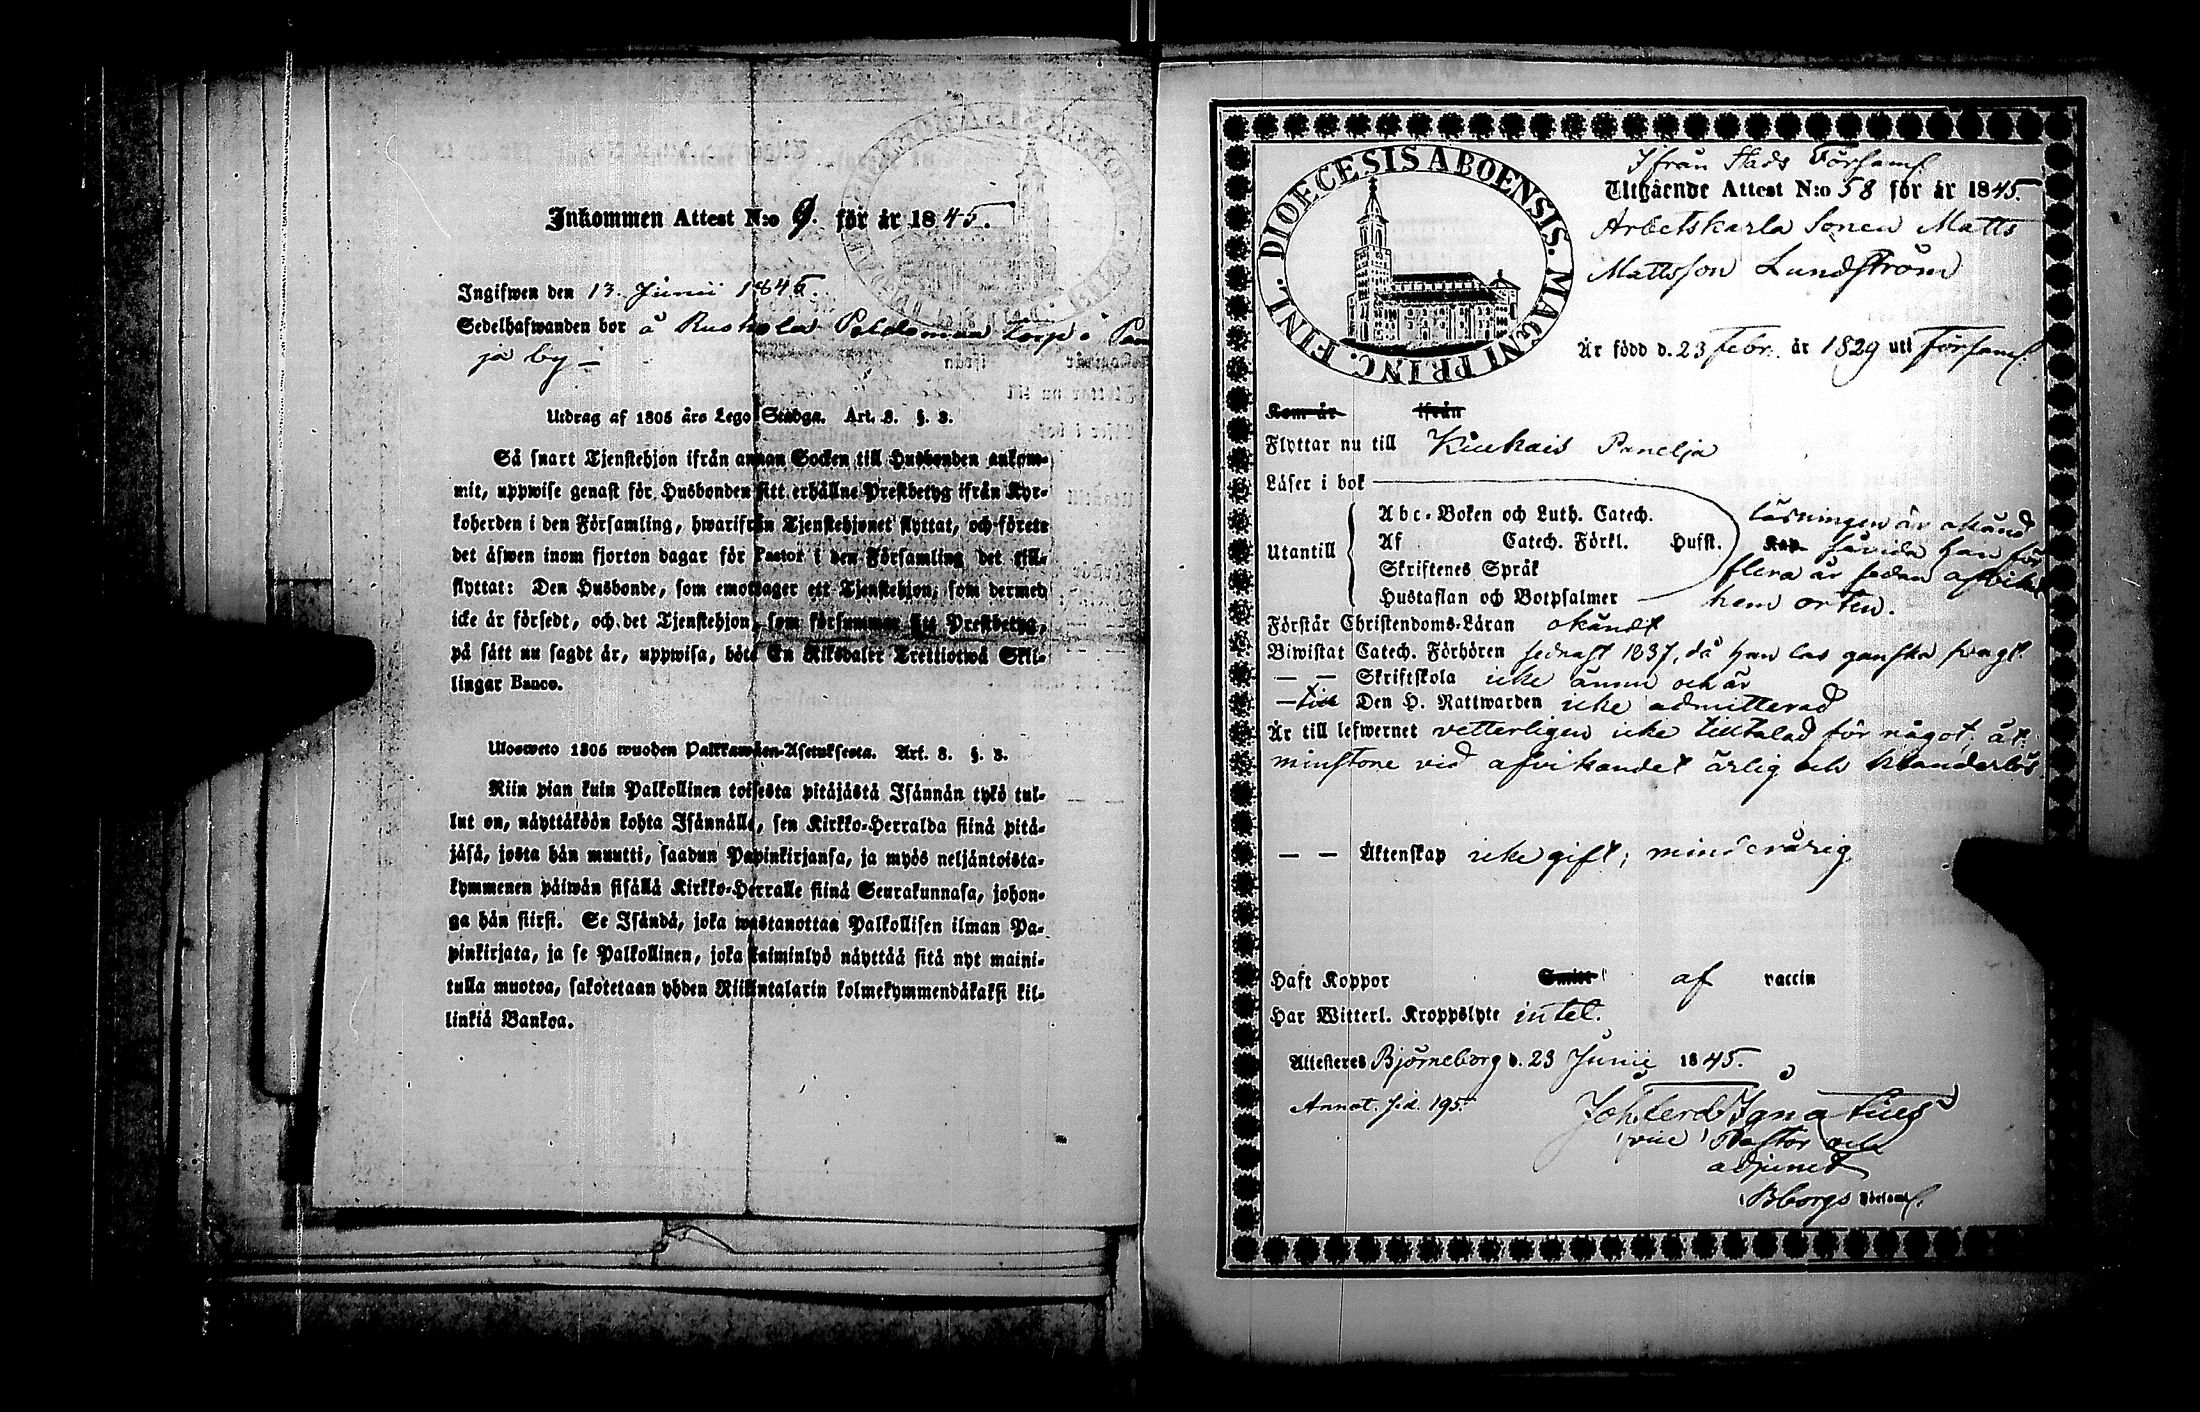 Inkommen Attest N:o 9. för år 1845.
Ingifwen den 13. Junii 1845.
Sedelhafwanden bor å Ruskela Peldomaa torp i Pan
ja by –
Utdrag af 1805 års Lego Stadga. Art. 3. §. 3.
Så snart Tjenstehjon ifrån annan Socken till Husbonden ankom-
mit, uppwise genast för Husbonden sitt erhållne Prestbetyg ifrån Kyr-
koherden i den Församling, hwarifrån Tjenstehjonet flyttat, och förete
det äfwen inom fjorton dagar för Pastor i den Församling det till-
flyttat: Den Husbonde, som emottager ett Tjenstehjon, som dermed
icke är försedt, och det Tjenstehjon, som försummar sitt Prestbetyg,
på sätt nu sagdt är, uppwisa, böte En Riksdaler Trettiotwå Skil-
lingar Banco.
Ulosweto 1805 wuoden Palkkawäen-Asetuksesta. Art. 3. §. 3.
Niin pian kuin Palkollinen toisesta pitäjästä Isännän tykö tul-
lut on, näyttäköön kohta Isännälle, sen Kirkko-Herralda siinä pitä-
jäsä, josta hän muutti, saadun Papinkirjansa, ja myös neljäntoista-
kymmenen päiwän sisällä Kirkko-Herralle siinä Seurakunnasa, johon-
ga hän siirsi. Se Isändä, joka wastanottaa Palkollisen ilman Pa-
pinkirjata, ja se Palkollinen, joka laiminlyö näyttää sitä nyt maini-
tulla muotoa, sakotetaan yhden Riikintalarin kolmekymmendäkaksi kil-
linkiä Bankoa.
DIOECESIS ABOENSIS. MAGNI PRINC. FINL.
Ifrån Stads Församl.
Utgående Attest N:o 58 för år 1845.
Arbetskarls Sonen Matts
Mattsson Lundström
Är född d. 23 Febr. år 1829 uti Församl.
Kom år ifrån
Flyttar nu till Kiukais Panelja
Läser i bok
Abc-Boken och Luth. Catech.
Utantill Af Catech. Förkl. Husst. Kap.
Skriftenes Språk
Hustaflan och Botpsalmer
läsningen är okänd
såvida han för
flera år sedan afvikit
hemorten.
Förstår Christendoms-Läran okändt
Biwistat Catech. Förhören sednast 1837, då han las ganska svagt.
— — Skriftskola icke ännu och är
— till Den H. Nattwarden icke admitterad
Är till lefwernet vetterligen icke tilltalad för något, åt-
minstone vid afvikandet ärlig och klanderlös.
— — Äktenskap icke gift; minderårig
Haft Koppor Smitt af vaccin
Har Witterl. Kroppslyte intet.
Attesteres Björneborg d. 23 Junii 1845.
Annot. sid. 195.
Ignatius
vice Pastor och
adjunct
Bborgs Församl.